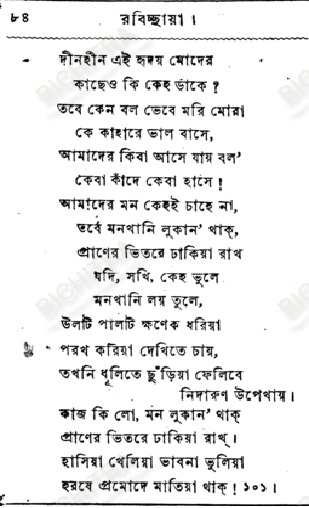 ৮৪ রবিচ্ছায়া।
দীনহীন এই হৃদয় মোদের
কাছেও কি কেহ ডাকে ?
তবে কেন বল ভেবে মরি মোরা
কে কাহারে ভাল বাসে,
আমাদের কিবা আসে যায় বল’
কেবা কাঁদে কেবা হাসে !
আমাদের মন কেহই চাহে না,
তবে মনখানি লুকান’ থাক্,
প্রাণের ভিতরে ঢাকিয়া রাখ
যদি, সখি, কেহ ভুলে
মনখানি লয় তুলে,
উলটি পালটি ক্ষণেক ধরিয়া
পরখ করিয়া দেখিতে চায়,
তখনি ধূলিতে ছুঁড়িয়া ফেলিবে
নিদারুণ উপেখায়।
কাজ কি লো, মন লুকান’ থাক্
প্রাণের ভিতরে ঢাকিয়া রাখ্।
হাসিয়া খেলিয়া ভাবনা ভুলিয়া
হরষে প্রমোদে মাতিয়া থাক্ ! ১০১।
BICHITRA